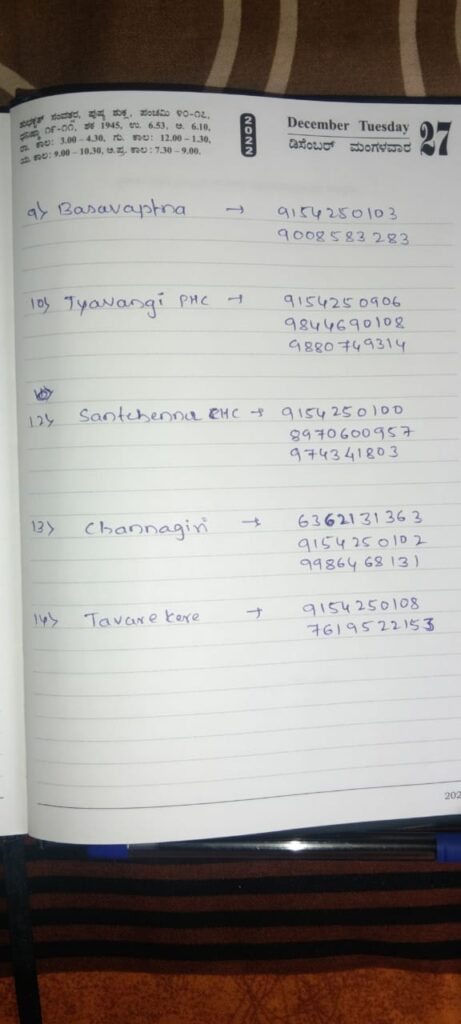 ಶುಭಕೃತ್ ಸಂವತ್ಸರ, ಪುಷ್ಯ ಶುಕ್ಲ, ಪಂಚಮಿ ೪೦-೧೭,
ಧನಿಷ್ಠಾ ೧೯-೧೧, ಶಕ 1945, ಉ. 6.53, ಅ. 6.10,
ರಾ. ಕಾಲ: 3.00 – 4.30, ಗು. ಕಾಲ: 12.00 – 1.30,
ಯ. ಕಾಲ: 9.00 – 10.30, ಅ.ಪ್ರ. ಕಾಲ : 7.30 – 9.00.
2022
December Tuesday 27
ಡಿಸೆಂಬರ್ ಮಂಗಳವಾರ
9> Basavaptna → 9154250103
9008583283
10> Tyavangi PHC → 9154250906
9844690108
9880749314
12> Santebennur CHC → 9154250100
8970600957
974341803
13> Channagiri → 6362131363
9154250102
9986468131
14> Tavarekere → 9154250108
7619522153
202